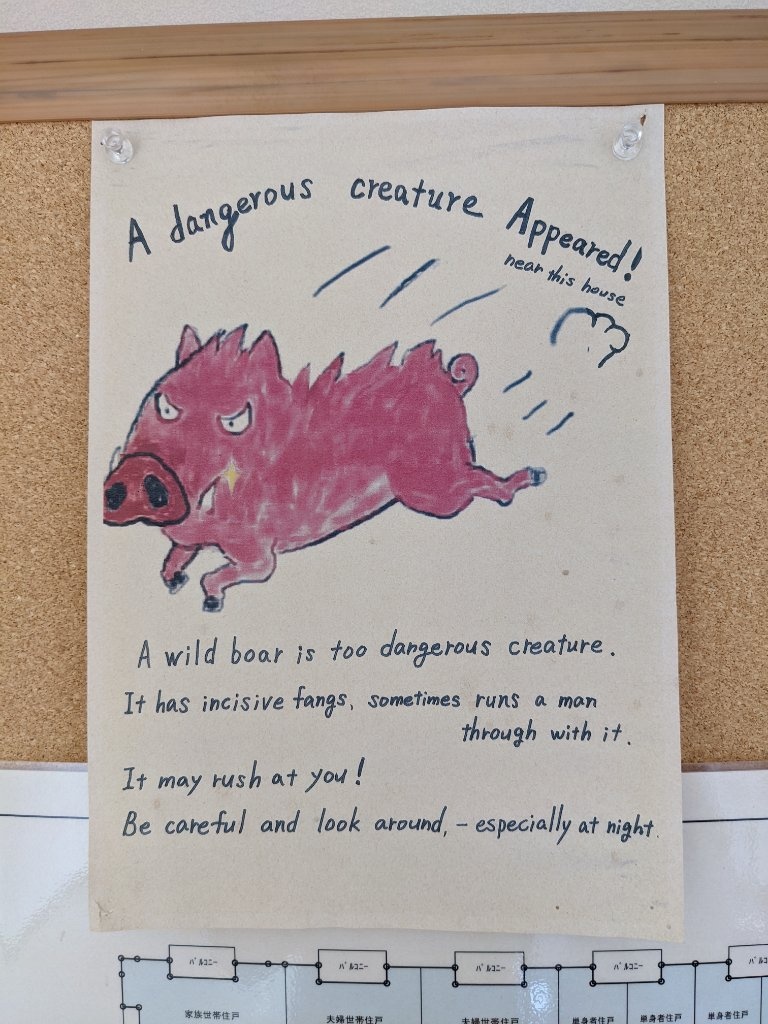 A dangerous creature Appeared!
near this house
A wild boar is too dangerous creature.
It has incisive fangs, sometimes runs a man
through with it.
It may rush at you!
Be careful and look around, - especially at night.
バルコニー バルコニー バルコニー バルコニー バルコニー
家族世帯住戸 夫婦世帯住戸 夫婦世帯住戸 単身者住戸 単身者住戸 単身者住戸